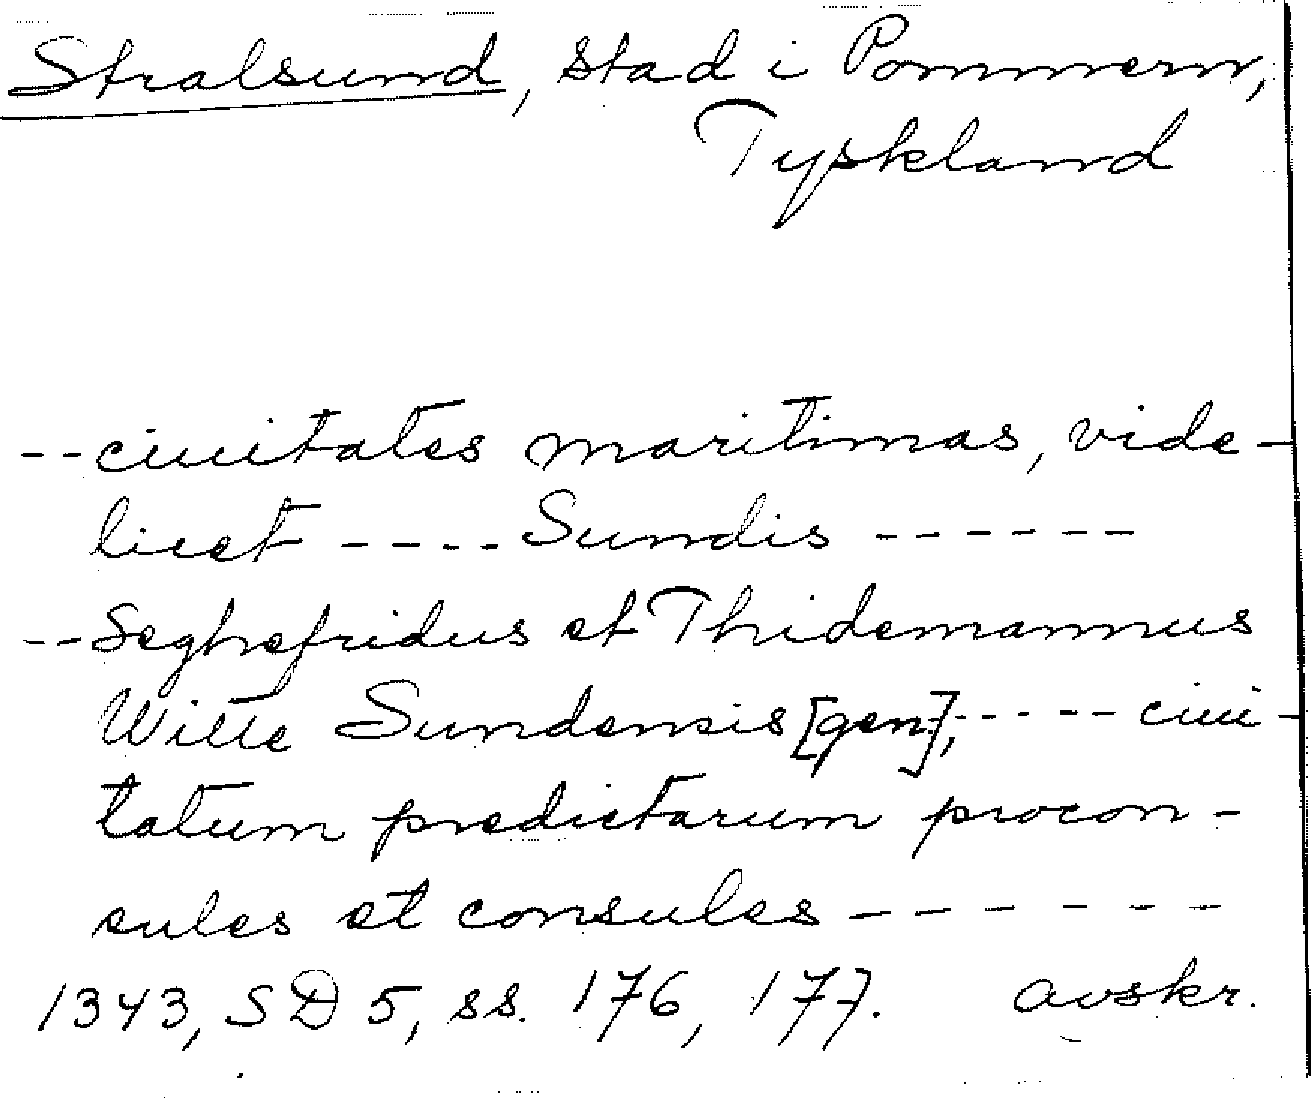 Stralsund, stad i Pommern,
Tyskland
--ciuitates maritimas, vide-
licet ---- Sundis ------
--Seghefridus et Thidemannus
Witte Sundensis [gen], ----- ciui-
tatum predictarum procon-
sules et consules ------
1343, SD 5, ss. 176, 177. avskr.